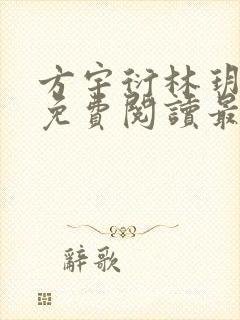 方宇衍林玥
免費閱讀最
辭歌